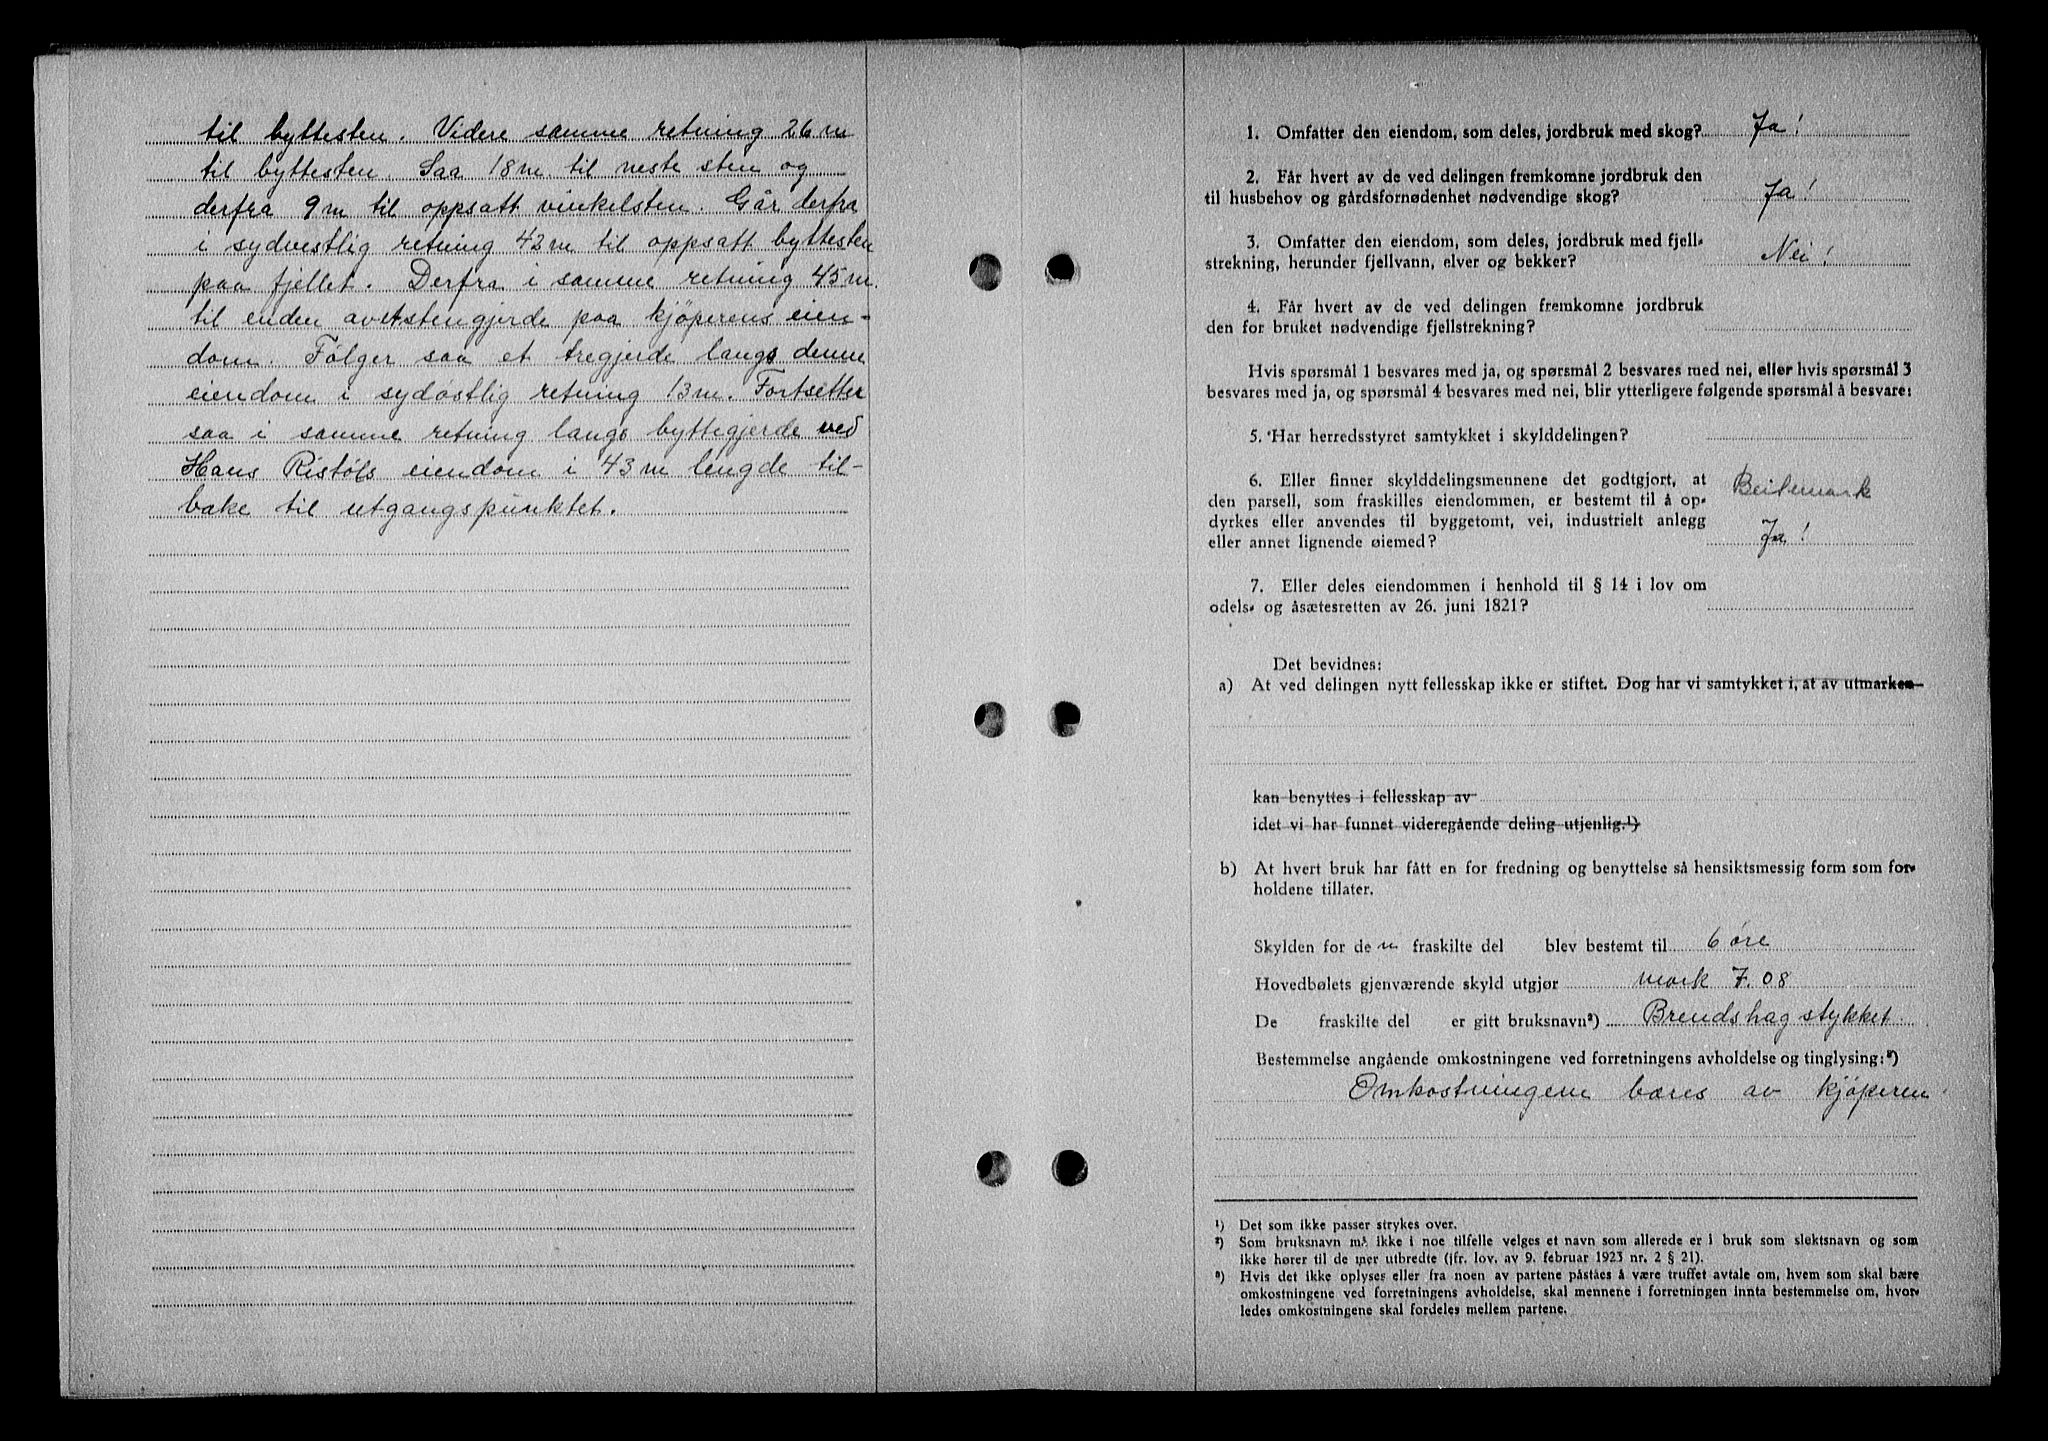 til byttesten. Videre samme retning 26 m
til byttesten. Saa 18 m. til neste sten og
derfra 9 m til oppsatt vinkelsten. Går derfra
i sydvestlig retning 42 m til oppsatt byttesten
paa fjellet. Derfra i samme retning 45 m.
til enden av stengjerde paa kjöperens eien-
dom. Fölger saa et tregjerde langs denne
eiendom i sydöstlig retning 13 m. Fortsetter
saa i samme retning langs byttegjerde ved
Hans Ristöls eiendom i 43 m lengde til-
bake til utgangspunktet.
1. Omfatter den eiendom, som deles, jordbruk med skog? Ja!
2. Får hvert av de ved delingen fremkomne jordbruk den
til husbehov og gårdsfornødenhet nødvendige skog? Ja!
3. Omfatter den eiendom, som deles, jordbruk med fjell-
strekning, herunder fjellvann, elver og bekker? Nei!
4. Får hvert av de ved delingen fremkomne jordbruk
den for bruket nødvendige fjellstrekning?
Hvis spørsmål 1 besvares med ja, og spørsmål 2 besvares med nei, eller hvis spørsmål 3
besvares med ja, og spørsmål 4 besvares med nei, blir ytterligere følgende spørsmål å besvare:
5. Har herredsstyret samtykket i skylddelingen?
6. Eller finner skylddelingsmennene det godtgjort, at
den parsell, som fraskilles eiendommen, er bestemt til å op- Beitemark
dyrkes eller anvendes til byggetomt, vei, industrielt anlegg
eller annet lignende øiemed? Ja!
7. Eller deles eiendommen i henhold til § 14 i lov om
odels- og åsætesretten av 26. juni 1821?
Det bevidnes:
a) At ved delingen nytt fellesskap ikke er stiftet. Dog har vi samtykket i, at av utmarken
kan benyttes i fellesskap av
idet vi har funnet videregående deling utjenlig.¹)
b) At hvert bruk har fått en for fredning og benyttelse så hensiktsmessig form som for-
holdene tillater.
Skylden for de n fraskilte del blev bestemt til 6 öre
Hovedbølets gjenværende skyld utgjør mark 7.08
De fraskilte del er gitt bruksnavn²) Brendshagstykket.
Bestemmelse angående omkostningene ved forretningens avholdelse og tinglysing:³)
Omkostningene bæres av kjöperen.
¹) Det som ikke passer strykes over.
²) Som bruksnavn må ikke i noe tilfelle velges et navn som allerede er i bruk som slektsnavn og som
ikke hører til de mer utbredte (jfr. lov. av 9. februar 1923 nr. 2 § 21).
³) Hvis det ikke oplyses eller fra noen av partene påståes å være truffet avtale om, hvem som skal bære
omkostningene ved forretningens avholdelse, skal mennene i forretningen innta bestemmelse om, hvor-
ledes omkostningene skal fordeles mellem partene.